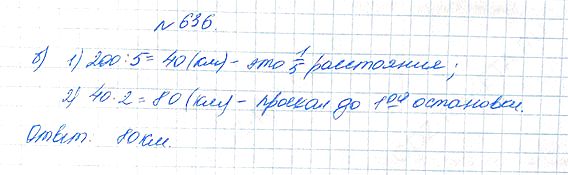 № 636.
б) 1) 200 : 5 = 40 (км) - это 1/5 расстояния;
2) 40 · 2 = 80 (км) - проехал до 1ой остановки.
Ответ. 80 км.